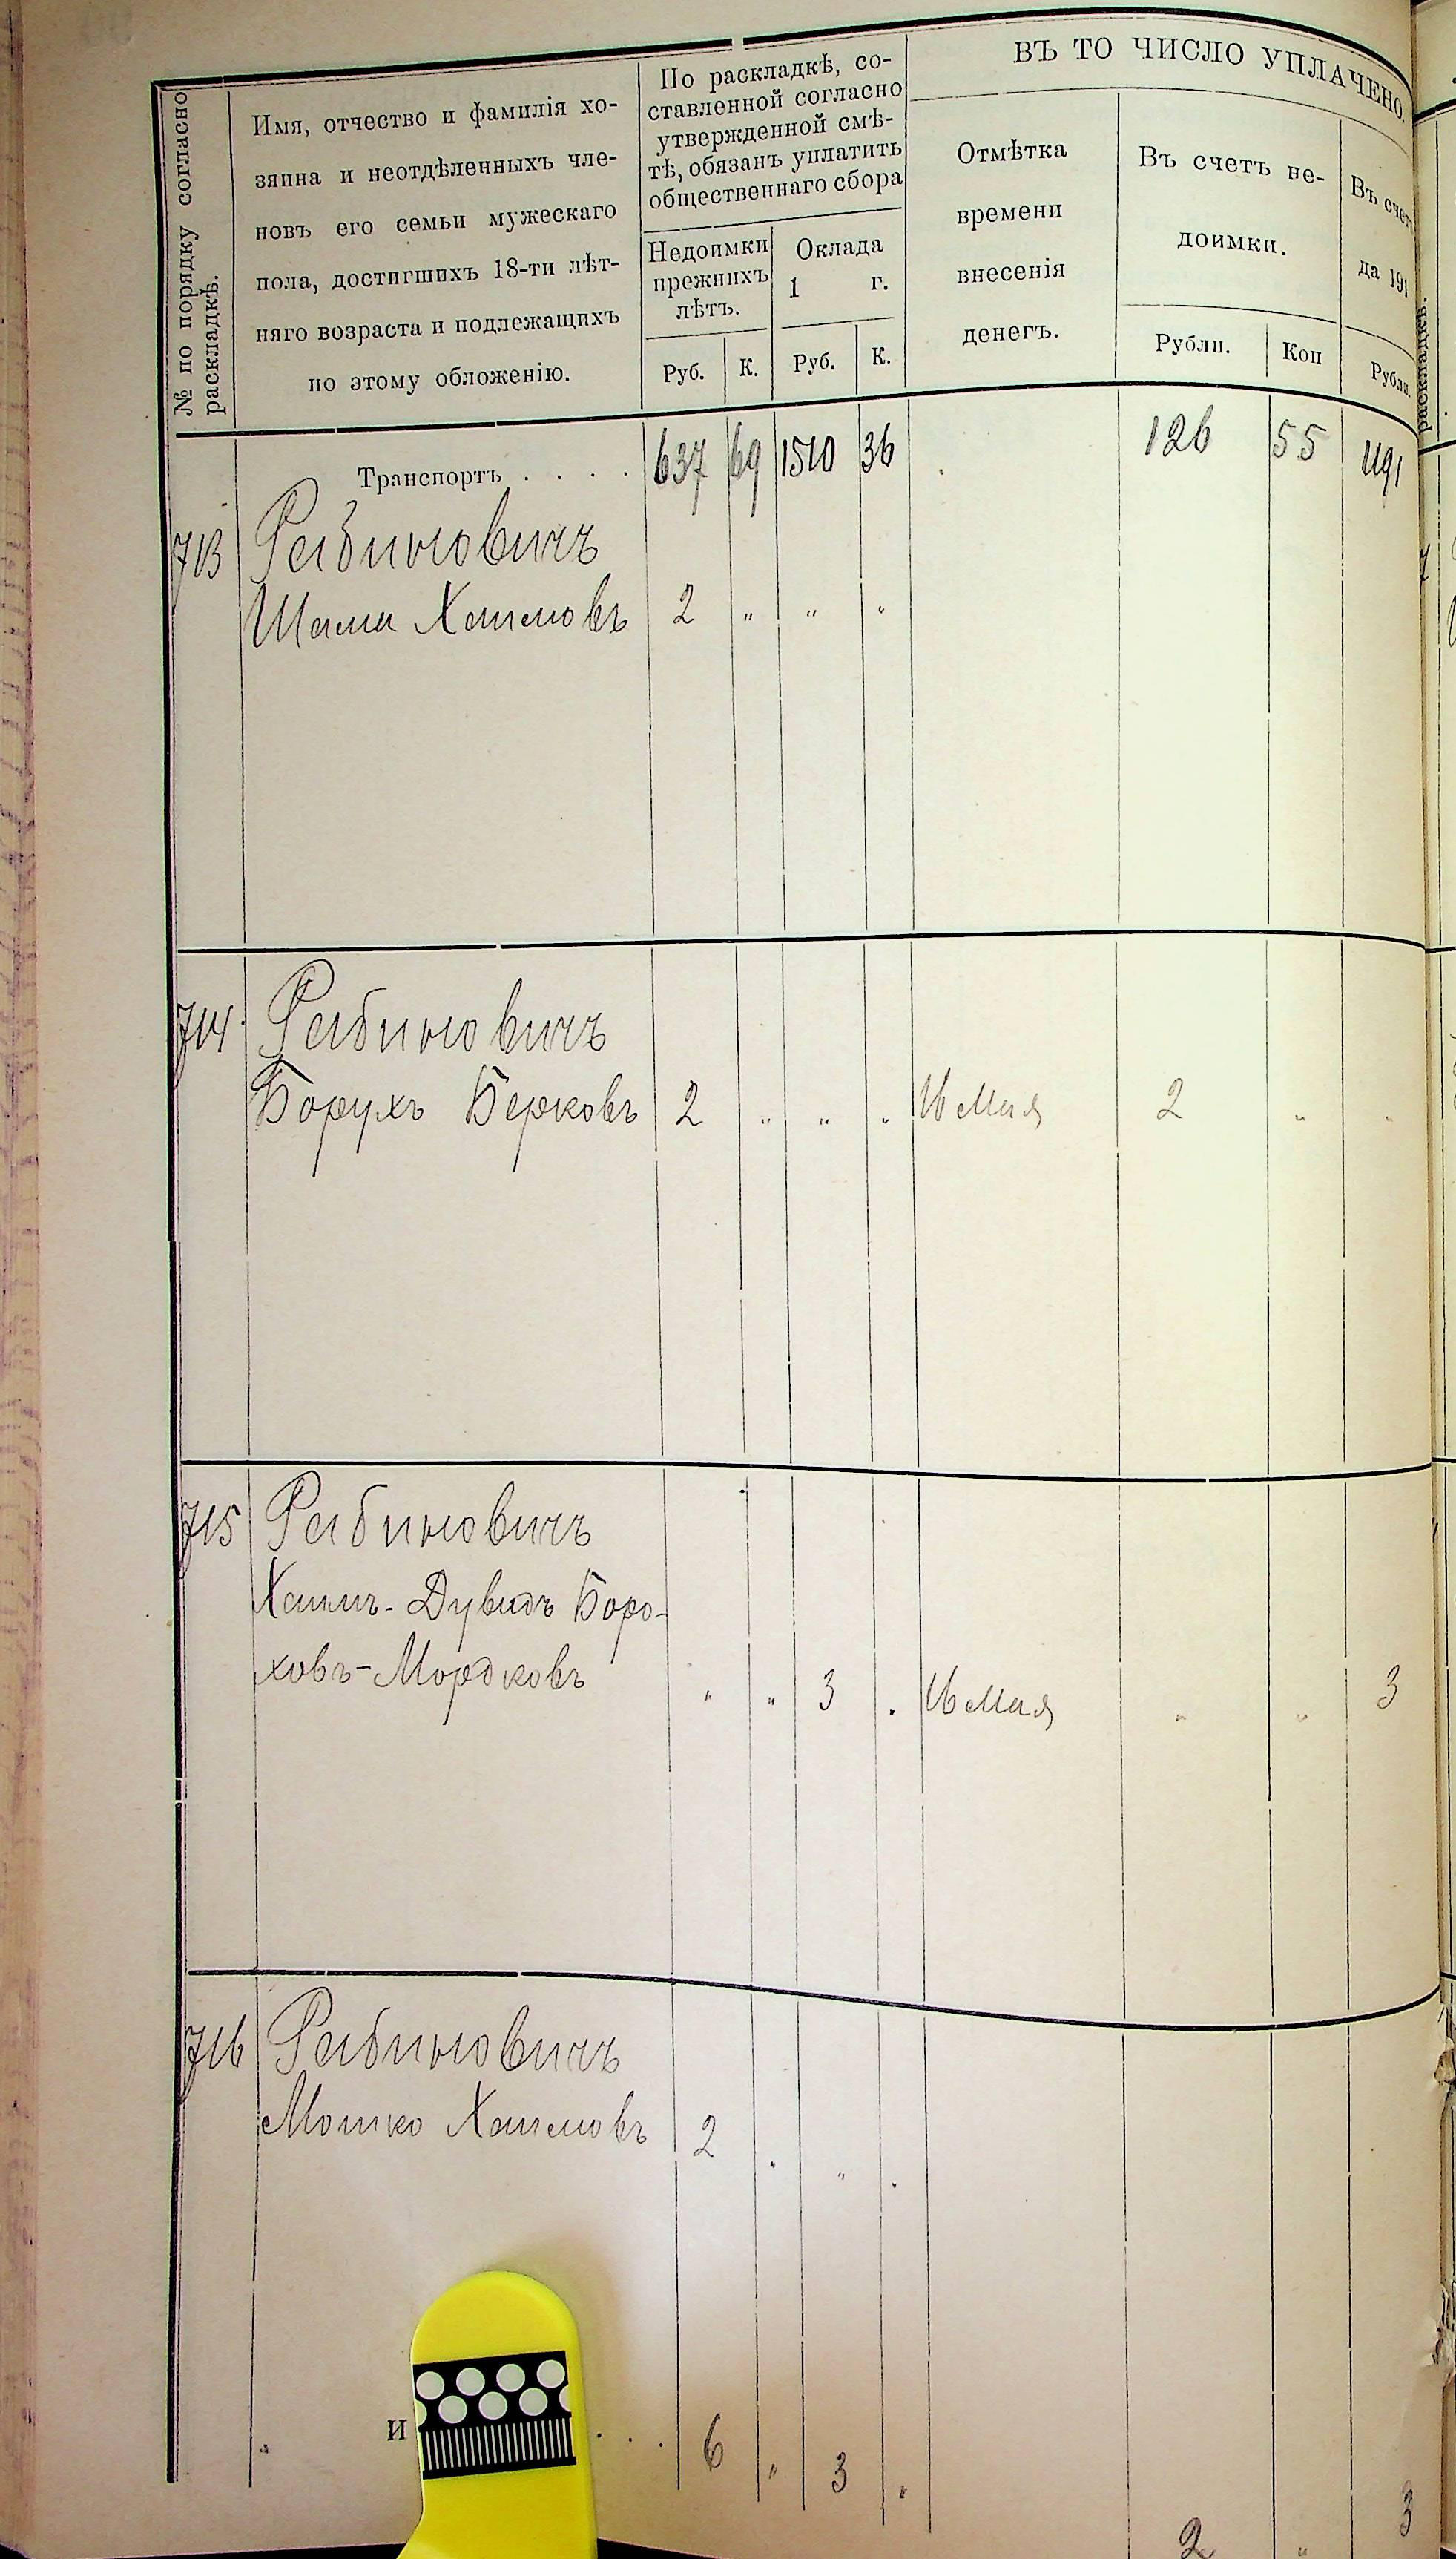 ВЪ ТО ЧИСЛО УПЛАЧЕНО.
№ по порядку согласно
раскладкѣ.
Имя, отчество и фамилія хо-
зяина и неотдѣленныхъ чле-
новъ его семьи мужескаго
пола, достигшихъ 18-ти лѣт-
няго возраста и подлежащихъ
по этому обложенію.
По раскладкѣ, со-
ставленной согласно
утвержденной смѣ-
тѣ, обязанъ уплатить
общественнаго сбора
Недоимки
прежнихъ
лѣтъ.
Оклада
1 г.
Руб. К. Руб. К.
Отмѣтка
времени
внесенія
денегъ.
Въ счетъ не-
доимки.
Рубли. Коп
Въ счет
да 191
Рубли.
раскладкѣ.
Транспортъ . . . . 637 69 1510 36 126 55 1191
713 Рабиновичъ
Шама Хаимовъ 2 " " "
714 Рабиновичъ
Борухъ Берковъ 2 " " " 16 Мая 2 " "
715 Рабиновичъ
Хаимъ-Дувидъ Боро-
ховъ-Мордковъ " " 3 " 16 Мая " " 3
716 Рабиновичъ
Мошко Хаимовъ 2 " " "
И . . . 6 " 3 " 2 " 3